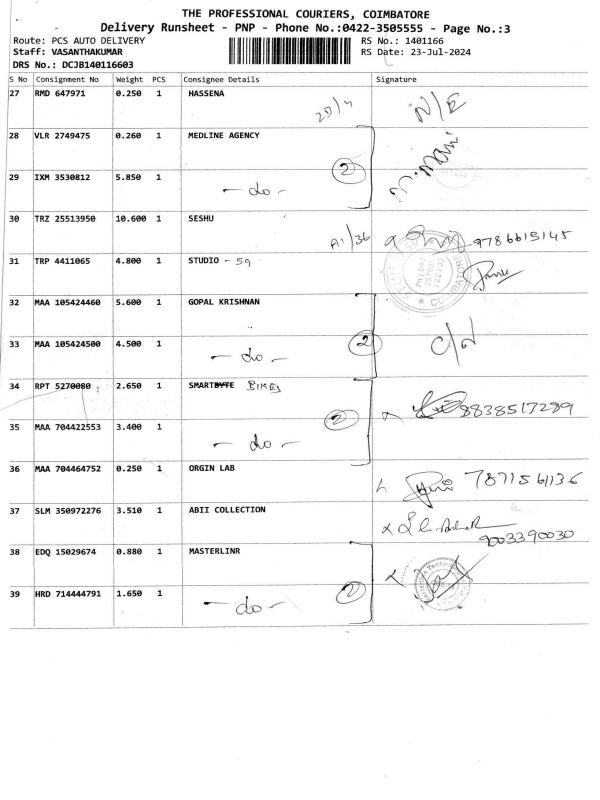 THE PROFESSIONAL COURIERS, COIMBATORE
Delivery Runsheet - PNP - Phone No.:0422-3505555 - Page No.:3
Route: PCS AUTO DELIVERY
RS No.: 1401166
Staff: VASANTHAKUMAR
RS Date: 23-Jul-2024
DRS No.: DCJB140116603
S No Consignment No Weight PCS Consignee Details Signature
27 RMD 647971 0.250 1 HASSENA N/E
28 VLR 2749475 0.260 1 MEDLINE AGENCY
2
29 IXM 3530812 5.850 1
- do -
30 TRZ 25513950 10.600 1 SESHU
A1/36 9786615145
31 TRP 4411065 4.800 1 STUDIO - 59
COIMBATORE
32 MAA 105424460 5.600 1 GOPAL KRISHNAN
33 MAA 105424500 4.500 1 2 C/N
- do -
34 RPT 5270080 2.650 1 SMARTBYTE BIKES
8838517289
35 MAA 704422553 3.400 1 2
- do -
36 MAA 704464752 0.250 1 ORGIN LAB
7871561136
37 SLM 350972276 3.510 1 ABII COLLECTION
9003390030
38 EDQ 15029674 0.880 1 MASTERLINR
39 HRD 714444791 1.650 1 2
- do -